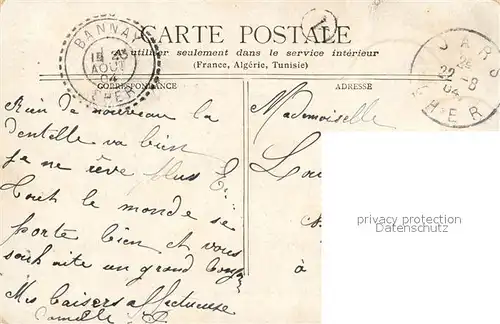 CARTE POSTALE
A utiliser seulement dans le service intérieur
(France, Algérie, Tunisie)
CORRESPONDANCE
ADRESSE
BANNAY
15
AOUT
04
CHER
JARS
22-8
04
CHER
Rien de nouveau la
dentelle va bien
je ne rêve plus
tout le monde se
porte bien et vous
souhaite un grand
Mes baisers affectueux
Camille
Mademoiselle
Lou
à
privacy protection
Datenschutz